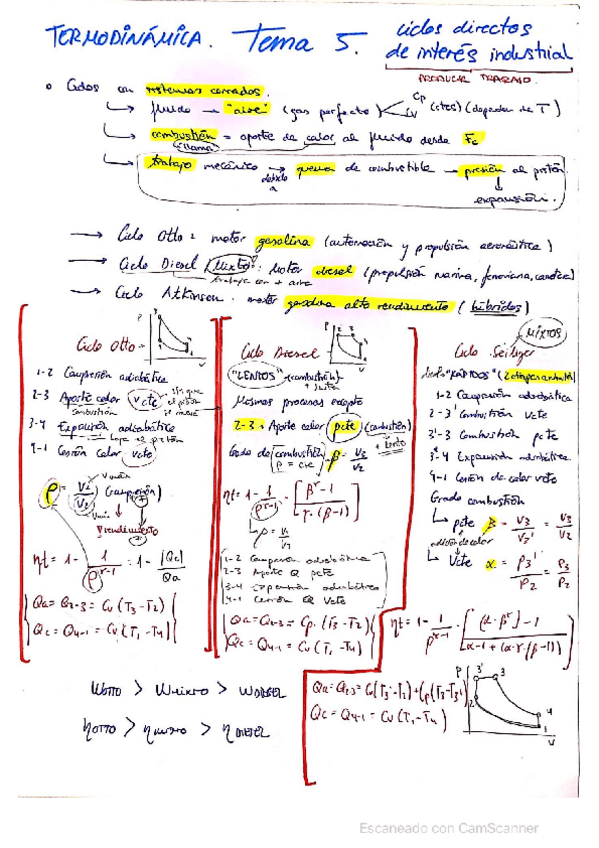 TERMODINÁMICA. Tema 5. ciclos directos
de interés industrial
PRODUCIR TRABAJO
Ciclos con sistemas cerrados.
fluido → "aire" (gas perfecto) Cp Cv (ctes) (dependen de T)
combustión = aporte de calor al fluido desde Fc
(llama)
trabajo mecánico → quema de combustible → presión al pistón
debido a
expansión.
→ Ciclo Otto: motor gasolina (automoción y propulsión aeronáutica)
→ Ciclo Diesel (Mixto): Motor diesel (propulsión marina, ferroviaria,
→ Ciclo Atkinson: motor gasolina alto rendimiento (híbridos)
P
V
Ciclo Otto
1-2 Compresión adiabática
2-3 Aporte calor Vcte
combustión
3-4 Expansión adiabática
4-1 Cesión calor Vcte
ρ = V1/V2 (compresión)
rendimiento
ηt = 1 - 1/ρ^γ-1 = 1 - |Qc|/Qa
Qa = Q2-3 = Cv (T3-T2)
Qc = Q4-1 = Cv (T1-T4)
Ciclo Diesel
"LENTOS" (combustión)
Mismos procesos excepto
2-3 = Aporte calor pcte (combustión)
+ lento
Grado de combustión → β = V3/V2
p = cte
ηt = 1 - 1/ρ^γ-1 · [β^γ - 1 / γ·(β-1)]
ρ = V1/V2
1-2 Compresión adiabática
2-3 Aporte Q pcte
3-4 Expansión adiabática
4-1 Cesión Q Vcte
Qa = Q2-3 = Cp · (T3-T2)
Qc = Q4-1 = Cv (T1-T4)
MIXTOS
Ciclo Seiliger
"RÁPIDOS" (2 etapas
1-2 Compresión adiabática
2-3' Combustión Vcte
3'-3 Combustión pcte
3-4 Expansión adiabática
4-1 Cesión de calor Vcte
Grado combustión
pcte β = V3/V3' = V3/V2
adición de calor
Vcte α = P3'/P2 = P3/P2
ηt = 1 - 1/ρ^γ-1 · [(α·β^γ) - 1 / α-1 + (α·γ·(β-1))]
Qa = Q2-3 = Cv (T3'-T2) + Cp (T3-T3')
Qc = Q4-1 = Cv (T1-T4)
P
3'
3
2
4
1
V
WOTTO > WMIXTO > WDIESEL
ηOTTO > ηMIXTO > ηDIESEL
Escaneado con CamScanner